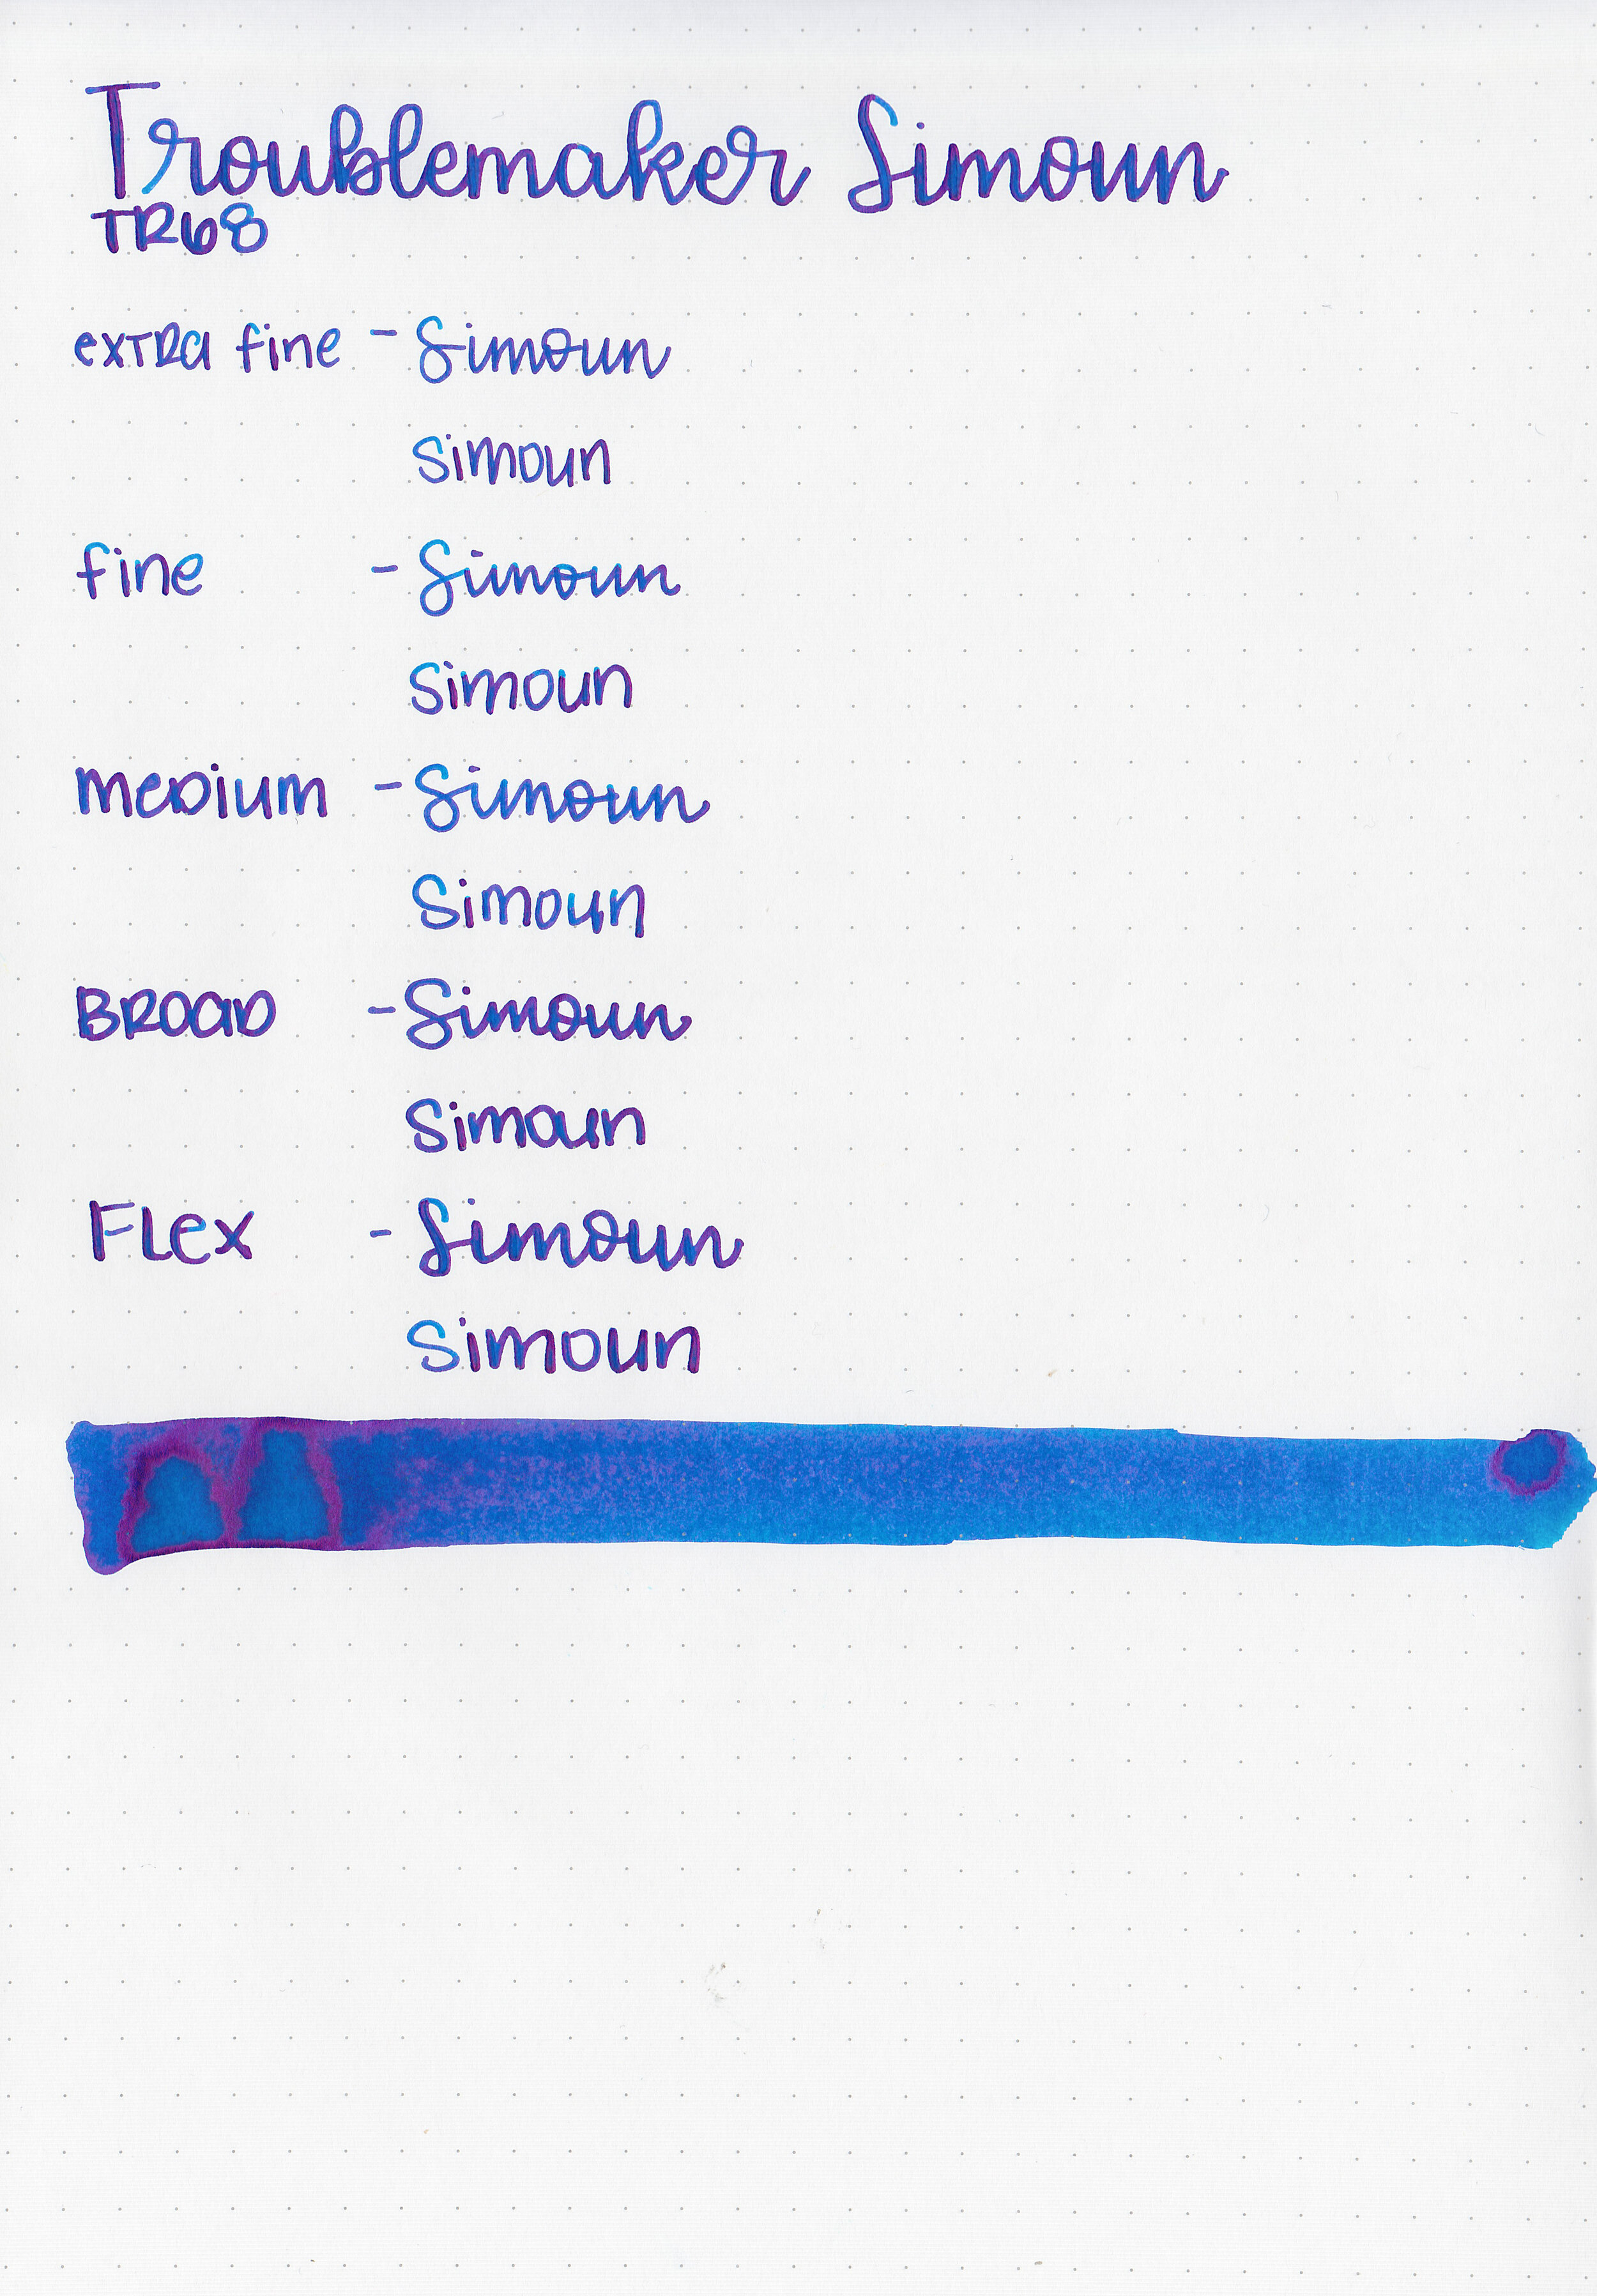 Troublemaker Simoun
TR68
extra fine - Simoun
Simoun
fine - Simoun
Simoun
medium - Simoun
Simoun
BROAD - Simoun
Simoun
Flex - Simoun
Simoun